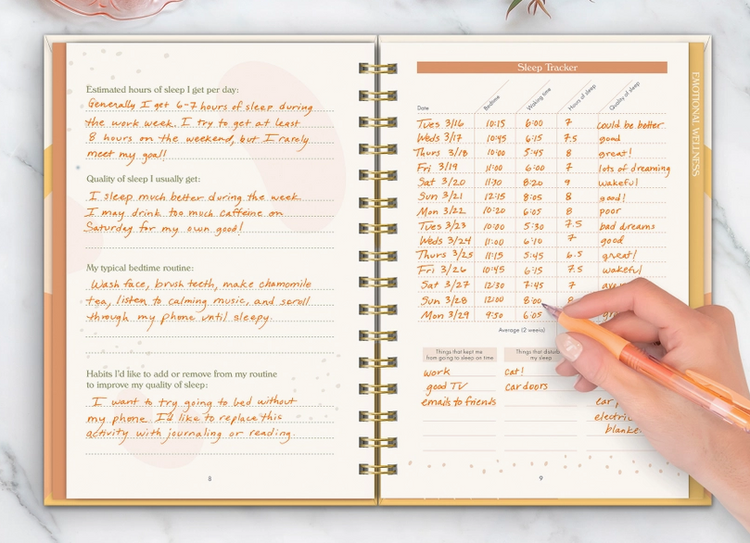 Estimated hours of sleep I get per day:
Generally I get 6-7 hours of sleep during
the work week. I try to get at least
8 hours on the weekend, but I rarely
meet my goal!
Quality of sleep I usually get:
I sleep much better during the week.
I may drink too much caffeine on
Saturday for my own good!
My typical bedtime routine:
Wash face, brush teeth, make chamomile
tea, listen to calming music, and scroll
through my phone until sleepy.
Habits I'd like to add or remove from my routine
to improve my quality of sleep:
I want to try going to bed without
my phone. I'd like to replace this
activity with journaling or reading.
8
Sleep Tracker
Date Bedtime Waking time Hours of sleep Quality of sleep
Tues 3/16 10:15 6:00 7 could be better
Weds 3/17 10:45 6:15 7.5 good
Thurs 3/18 10:00 5:45 8 great!
Fri 3/19 11:00 6:00 7 lots of dreaming
Sat 3/20 11:30 8:20 9 wakeful
Sun 3/21 12:15 8:05 8 good!
Mon 3/22 10:20 6:05 8 poor
Tues 3/23 10:30 5:30 7.5 bad dreams
Weds 3/24 11:00 6:10 7 good
Thurs 3/25 11:15 5:45 6.5 great!
Fri 3/26 10:45 6:15 7.5 wakeful
Sat 3/27 12:30 7:45 7
Sun 3/28 12:00 8:00
Mon 3/29 9:30 6:05
Average (2 weeks)
Things that kept me
from going to sleep on time
work
good TV
emails to friends
Things that
my sleep
cat!
car doors
electric
9
EMOTIONAL WELLNESS